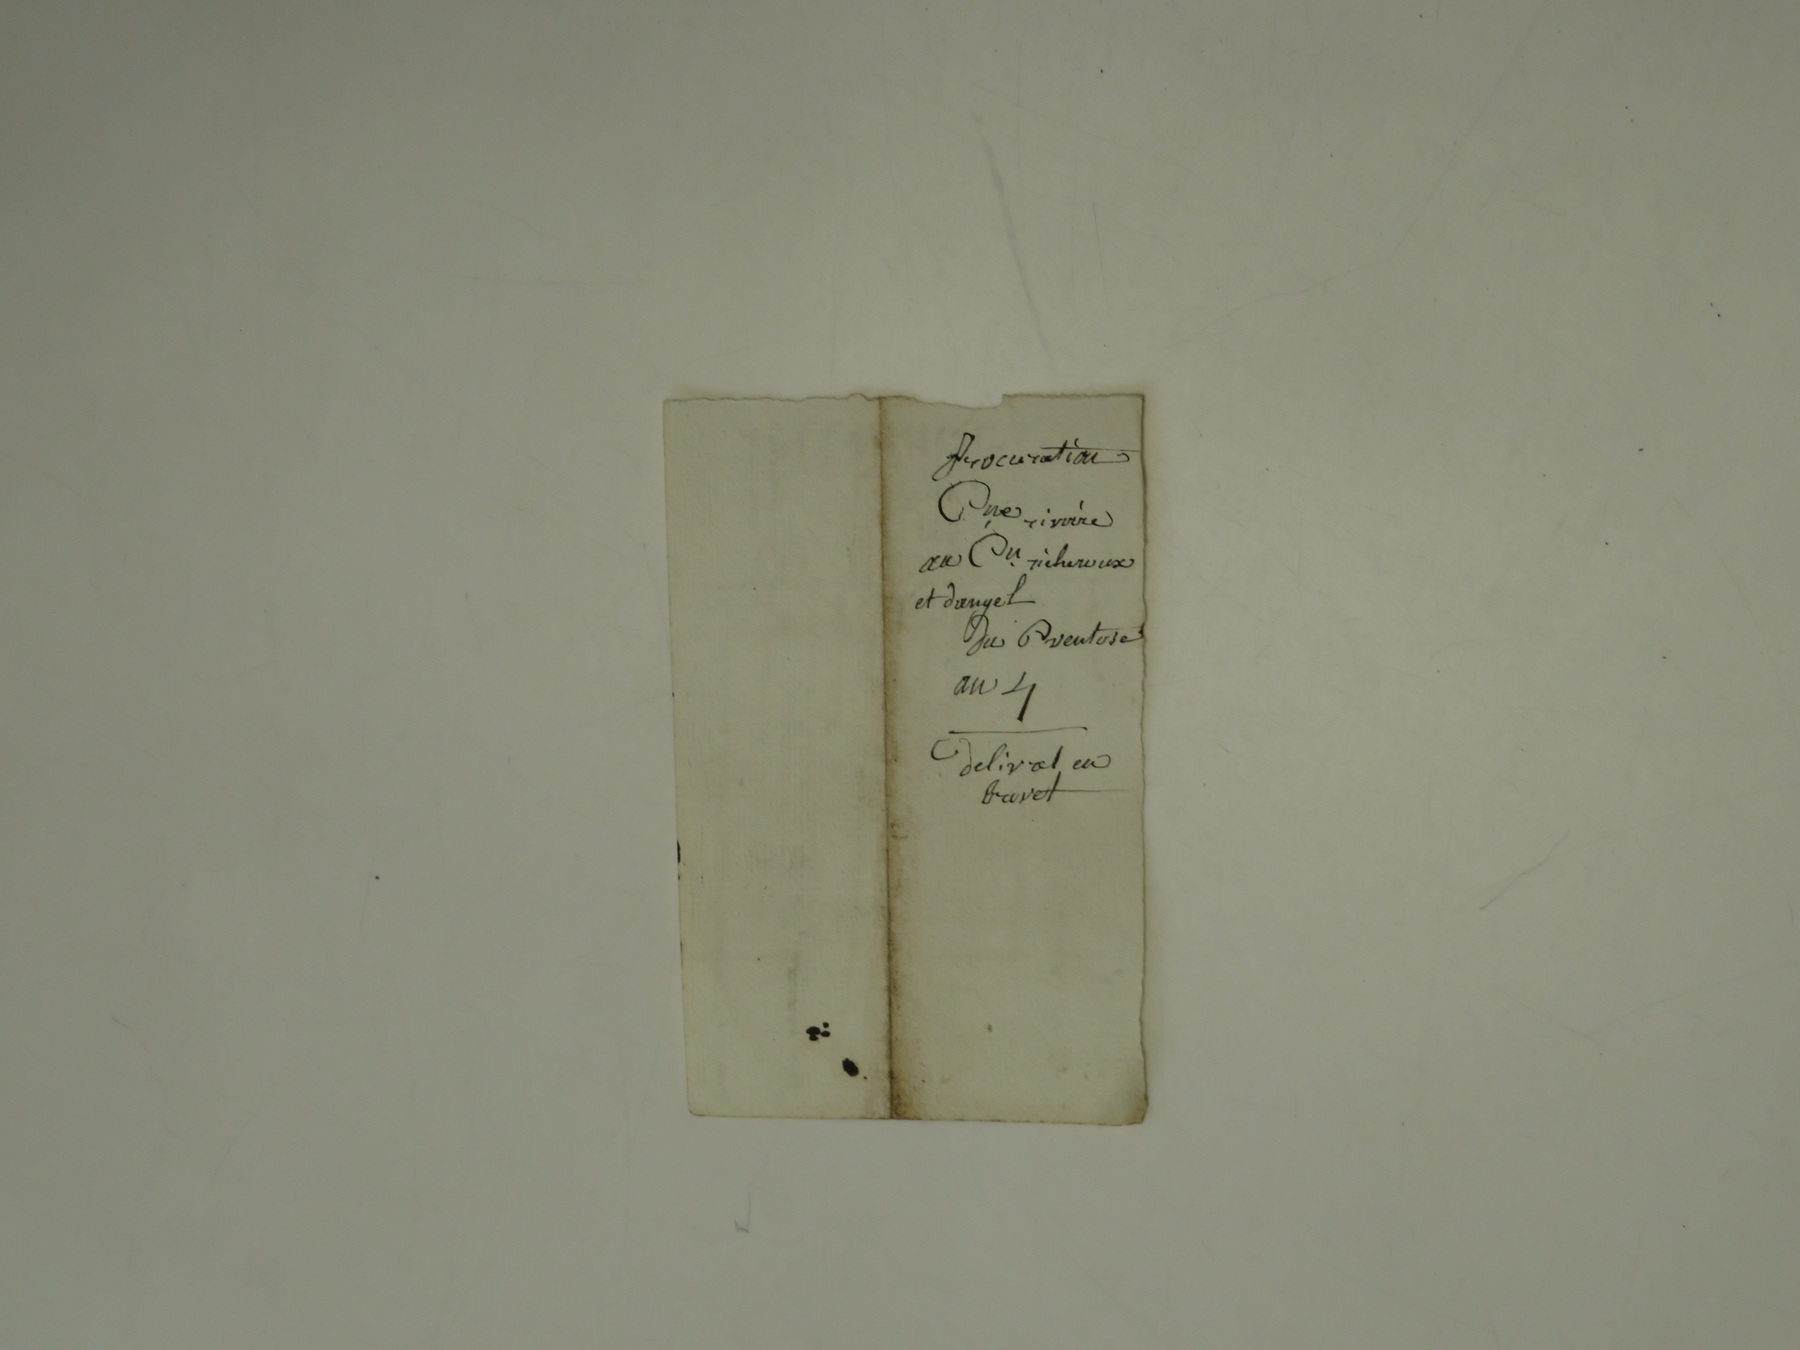 Procuration
Cne rivoire
au Cn. richeroux
et dangel
Du ventose
an 4
delivré en
bravet